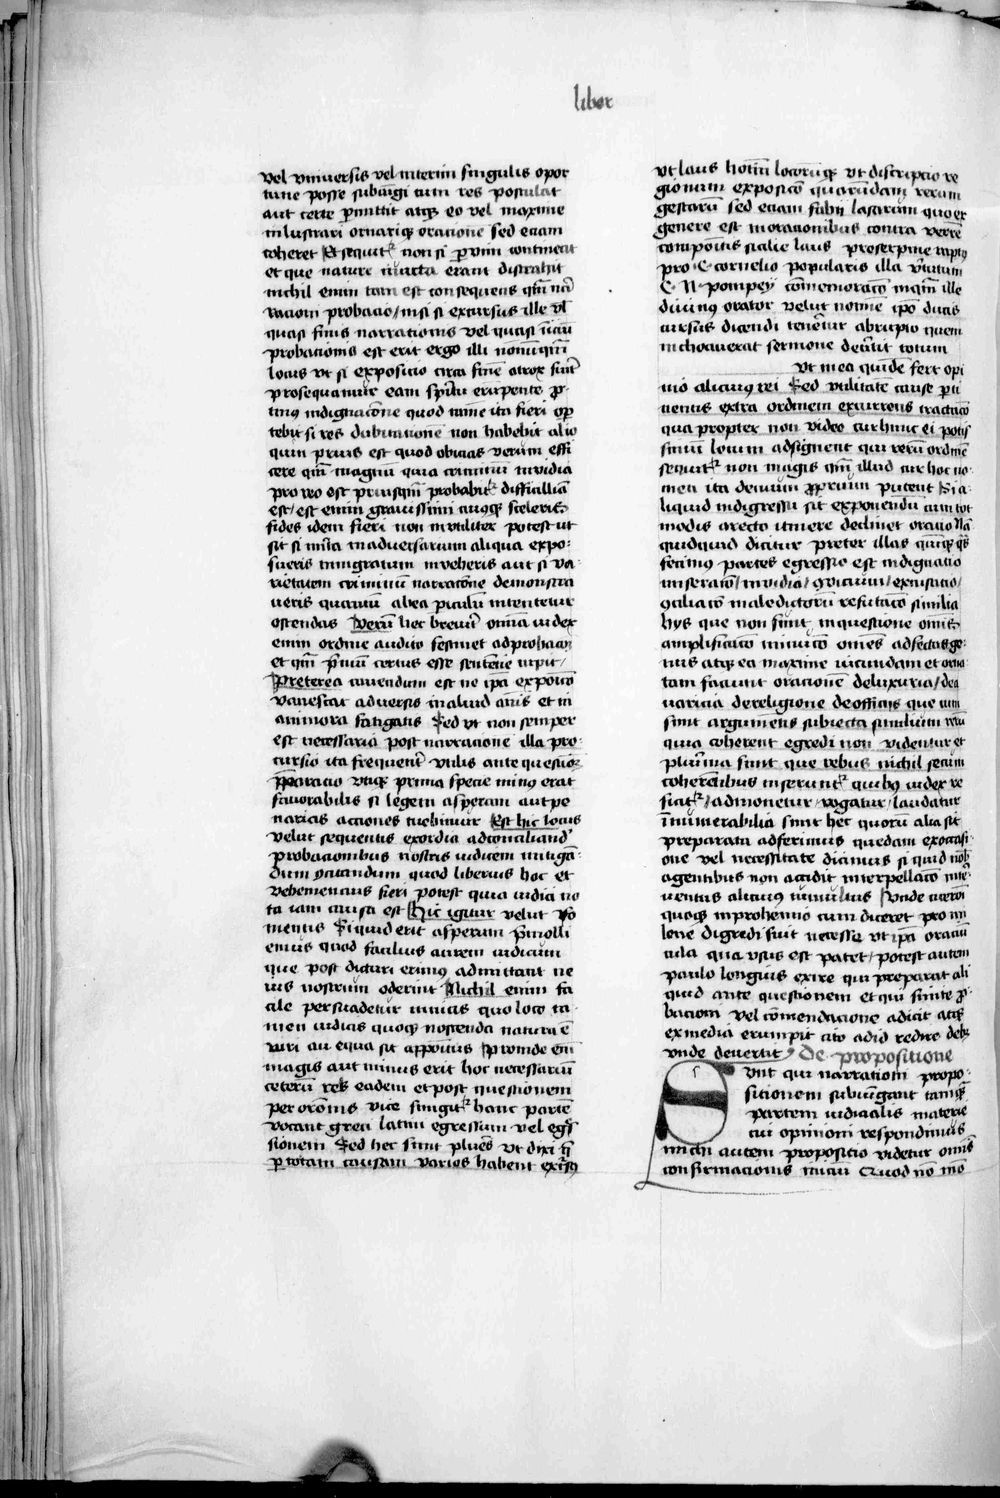 liber
vel vniuersis vel interim singulis opor
tune posse subiu̅gi cum res postulat
aut certe p̲mittit atq̲ꝫ eo vel maxime
inlustrari ornariq̲ꝫ oratione Sed etiam
coheret Et sequit᷑ non si p̲ vim contineat
et que nature iu̅cta erant distrahit
nichil enim tam est consequens qm̅ nar̅
racioni probacio / nisi si excursus ille vl̅
quasi finis narrationis vel quasi iniciu̅
probacionis est erit ergo illi nonnu̅qm̅
locus vt si expositio circa fine̅ atrox fuerit̅
prosequamur eam sp̅itu erumpente p̲
tinus indignac̅one quod tame̅ ita fieri op̲
tebit si res dubitatione̅ non habebit alio
quin prius est quod obicias verum effi
cere qm̅ magnu̅ quia criminu̅ inuidia
pro reo est priusqm̅ probabit᷑ difficillia̅
est / est enim grauissimi cuiusq̲ꝫ sceleris
fides idem fieri non inutiliter potest ut
sit si m̅ita in aduersarium aliqua expo:
sueris in ingratum inueheris aut si va
rietatem criminu̅ narrat̅one demonstra
ueris quantu̅ ab ea p̲iculu̅ intentetur
ostendas Veru̅ hec breuit̅ omnia iudex
enim ordine audito festinet ad probacio̅
et qm̅ p̅mu̅ certus esse sententie cupit /
Preterea cauendum est ne ip̅a expositio
vanescat aduersis in aliud an̅is et in
ani mora fatigatis Sed vt non semper
est necessaria post narracione̅ illa pro:
cursio ita frequent̅ vtilis ante questione̅
p̲paratio vtiq̲ꝫ prima specie min9 erat
fauorabilis si legem asperam aut pe
narias actiones tuebimur Est hic locus
velut sequentis exordia ad conciliand'
probacionibus nostris iudicem mitiga̅:
dum concitandum quod liberius hoc et
vehementius fieri potest quia iudici no
ta iam causa est Hic igitur velut fo
mentis Si quid erit asperum p̅molli
emus quod facilius aurem iudicum
que post dicturi erimus admittant ne
ius nostrum oderint Nichil enim fa
cile persuadetur inuitis quo loco ta
men iudicis quoq̲ꝫ noscenda natura e̅
iuri an equa sit appositus Proinde em̅
magis aut minus erit hoc necessariu̅
ceteru̅ res eadem et post questionem
perorationis vice fungit᷑ hanc parte̅
vocant greci latini egressum vel egr̅s
sionem Sed hec sunt plures vt dixi q̅
p̲ totam causam varios habent excurs9
vt laus ho̅im locoruq̲ꝫ vt discripcio re
gionum exposic̅o quarundam rerum
gestaru̅ sed etiam fabularum quo ex
genere est in orationibus contra verre̅
compositis sicilie laus proserpine rapt9
pro C cornelio popularis illa virtutum
C N pompey co̅memorac̅o in qua̅ ille
diuin9 orator velut no̅ine ip̅o ducis
cursus dicendi tener̅tur abrupto quem
inchoauerat sermone deu̅tit totum
vt mea quide̅ fert opi
nio alicui9 rei Sed vtilitate̅ cause p̲ti
nentis extra ordinem excurrens tractac̅o
qua propter non video cur hunc ei potis
simu̅ locum adsignent qui reru̅ ordine̅
sequit᷑ non magis qm̅ illud cur hoc no:
men ita demum p̲prium putent Si a:
liquid in digressu sit exponendu̅ cum tot
modis a recto itinere declinet oratio Na̅
quidquid dicitur preter illas quinq̲ꝫ q̅s
fecim9 partes egressio est indignatio
miserac̅o / inuidia / co̅uicium / excusatio /
co̅ciliac̅o maledictoru̅ refutac̅o similia
hys que non sunt in questione omnis
amplificac̅o minuc̅o omne̅s adfectus ge:
nus atq̲ꝫ ea maxime iucundam et orna
tam faciunt oratione̅ de luxuria / de a
uaricia de religione de officijs que cum
sint argumentis subiecta similium reru̅
quia coherent egredi non videntur et
plurima sunt que rebus nichil secum
coherentibus inserunt᷑ quib9 iudex re
ficit᷑ / admonetur / rogatur / laudatur
in̅umerabilia sunt hec quoru̅ alia sit
preparata adferimus quedam ex occasi:
one vel necessitate dicimus si quid nob̅
agentibus non accidit interpellac̅o inte̅r
uentus alicui9 tumultus Vnde ciceroni
quoq̲ꝫ in prohemio cum diceret pro mi
lone digredi fuit necesse vt ip̅a oraciu̅
cula qua vsus est patet / potest autem
paulo longius exire qui preparat ali
quid ante questionem et qui finite p̲
bacioni vel co̅mendacione adicit atq̲ꝫ
ex media erumpit cito ad id redire deb̅
vnde deuertit De propositione
Sunt qui narrationi propo:
sicionem subiungant tamq̅ꝫ
partem iudicialis materie
cui opinioni respondimus
michi autem propositio videtur omnis
confirmacionis iniciu̅ Quod no̅ mo̅